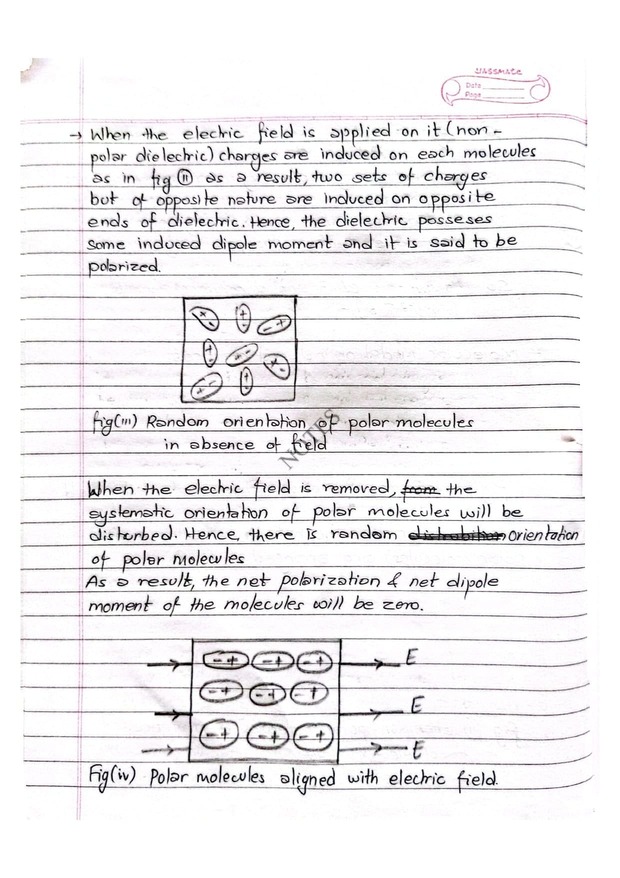 CLASSMATE
Date
Page
→ When the electric field is applied on it (non-
polar dielectric) charges are induced on each molecules
as in fig (ii) as a result, two sets of charges
but of opposite nature are induced on opposite
ends of dielectric. Hence, the dielectric posseses
some induced dipole moment and it is said to be
polarized.
+ - + - - +
+ - + - + -
+ - + - - +
fig(iii) Random orientation of polar molecules
in absence of field
NOTES
When the electric field is removed, from the
systematic orientation of polar molecules will be
disturbed. Hence, there is random orientation
of polar molecules
As a result, the net polarization & net dipole
moment of the molecules will be zero.
- + - + - + E
- + - + - + E
- + - + - + E
Fig(iv) Polar molecules aligned with electric field.